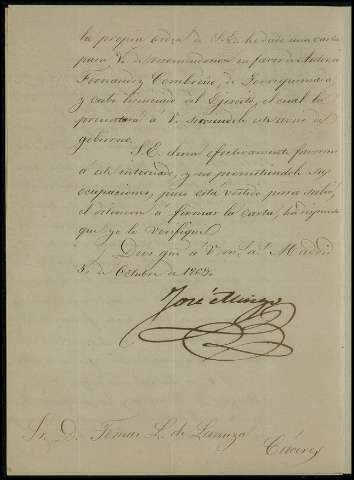 la propia orden de S.E. he dado una carta
para V. de recomendacion en favor de Antonio
Fernandez de
y cabo licenciado del Ejército, el cual la
presentará á V. sirviendole este como de
gobierno.
S.E. desea efectivamente favorecer
á este interesado, y no permitiendole sus
ocupaciones, pues está vestido para salir,
el detenerse á firmar la carta, ha dispuesto
que yo lo verifique.
Dios gue á V. m. a. Madrid
de Octubre de 1863.
José Mingo
Sr. D. Tomas L. de Lanuza
Cáceres